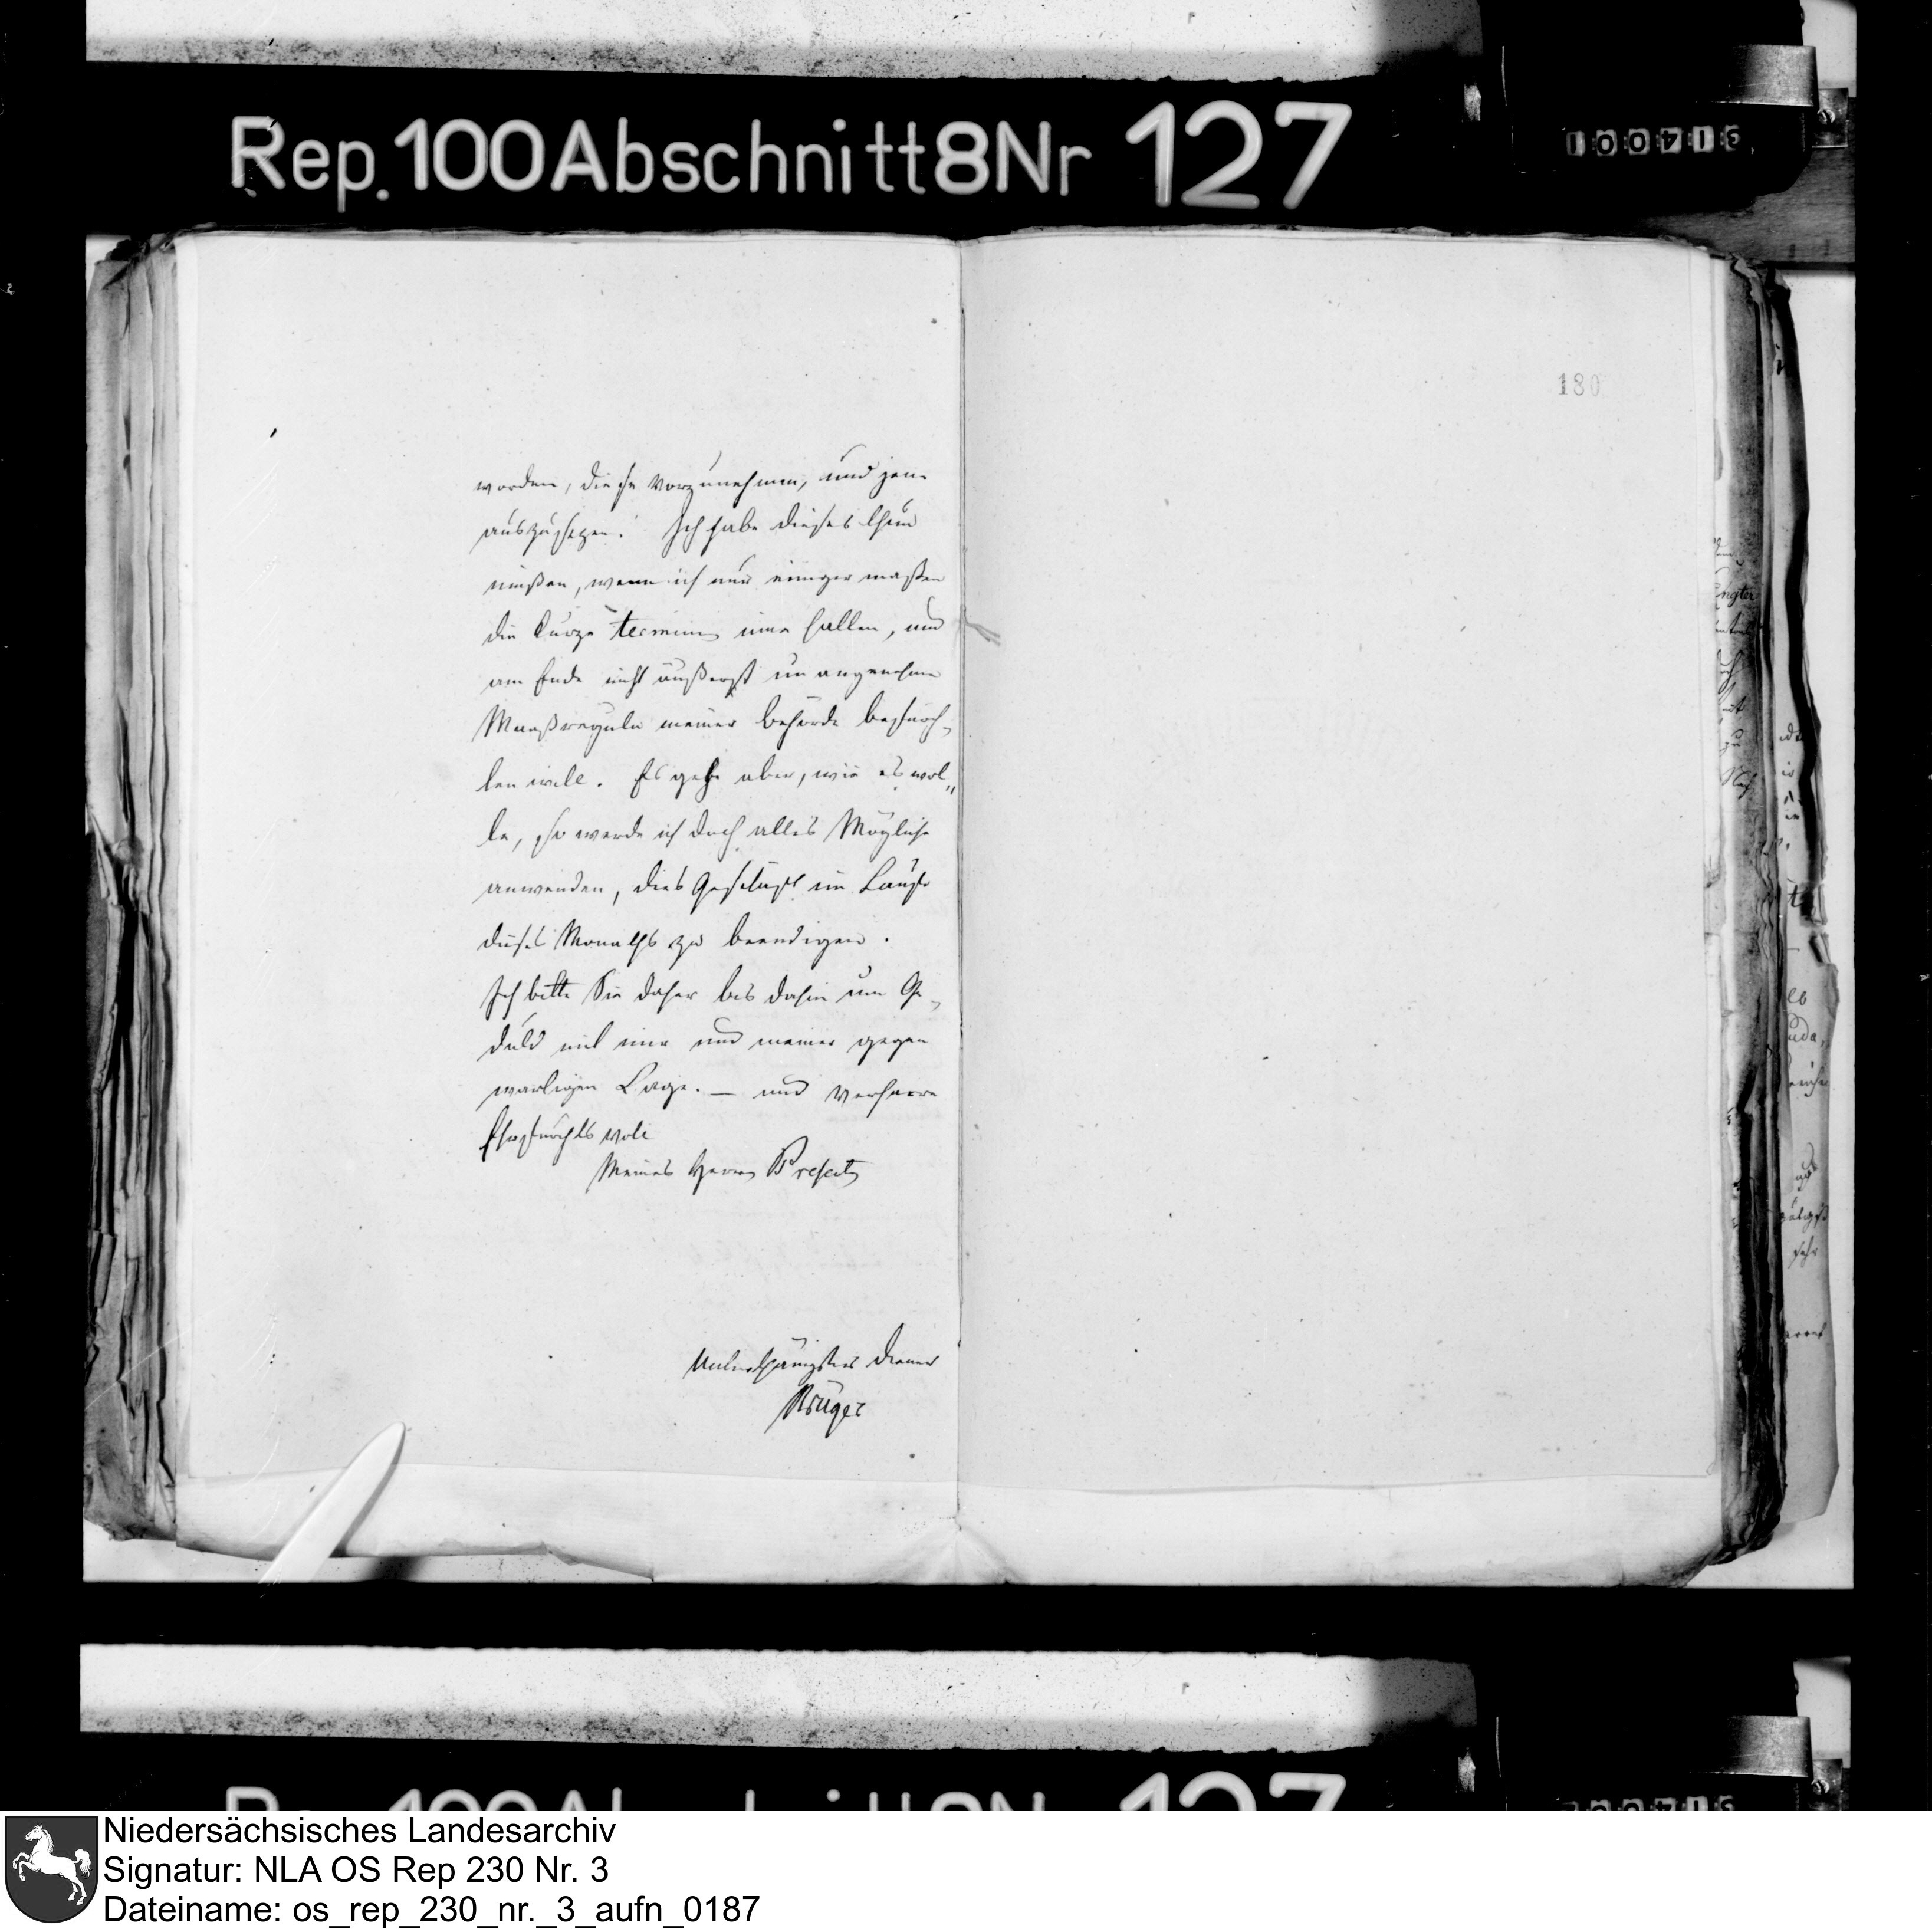 Rep. 100 Abschnitt 8 Nr 127
180
worden, diese vorzunehmen, und jene
auszusezen. Ich habe dieses thun
müßen, wenn ich nur einiger maßen
die kurze termins inne halten, und
am Ende nicht äußerst unangenehme
Maasreguln meiner behörde befürch-
ten will. Es gehe aber, wie es wol„
le, so werde ich doch alles Mögliche
anwenden, dies Geschäft im Laufe
dieses Monaths zu beendigen.
Ich bitte Sie daher bis dahin um Ge-
duld mit mir und meiner gegen
wartigen Lage. — und verharre
Ehrfurchtsvoll
Meines Herrn Prefects
Unterthänigster Diener
Krüger
Niedersächsisches Landesarchiv
Signatur: NLA OS Rep 230 Nr. 3
Dateiname: os_rep_230_nr._3_aufn_0187